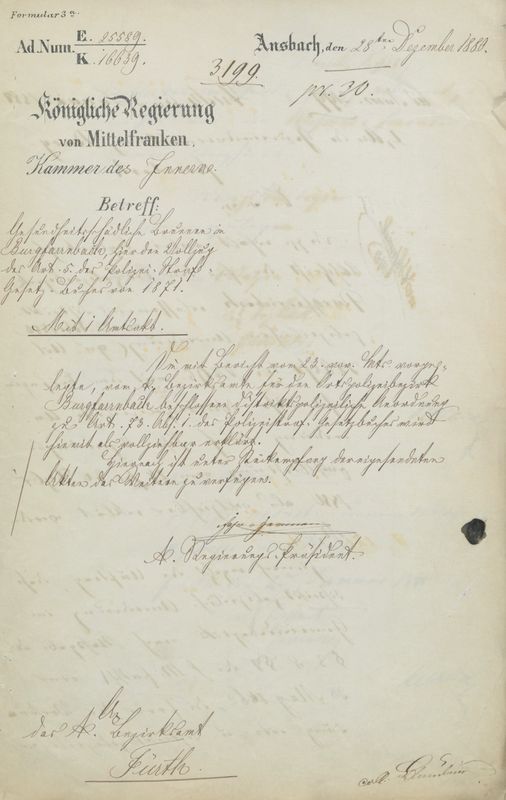 Formular 3a
Ad. Num. E. 25589.
K. 16639.
Ansbach, den 28ten Dezember 1880.
3199.
pr. 30.
Königliche Regierung
von Mittelfranken,
Kammer des Innern.
Betreff:
Gesundheitsschädliche Brunnen in
Burgfarrnbach, hier den Vollzug
des Art. 5. des Polizei-Straf-
Gesetz-Buches von 1871.
Mit 1 Amtsakt.
Die mit Bericht vom 23. vor. Mts. vorge-
legte, vom k. Bezirksamte für den Ortspolizeibezirk
Burgfarrnbach beschlossene distriktspolizeiliche Anordnung
zu Art. 73. Abs. 1. des Polizeistraf-Gesetzbuches wird
hiemit als vollziehbar erklärt.
Hienach ist unter Rückempfang der eingesendeten
Akten des Weitern zu verfügen.
K. Regierungs-Präsident.
An
das K. Bezirksamt
Fürth.